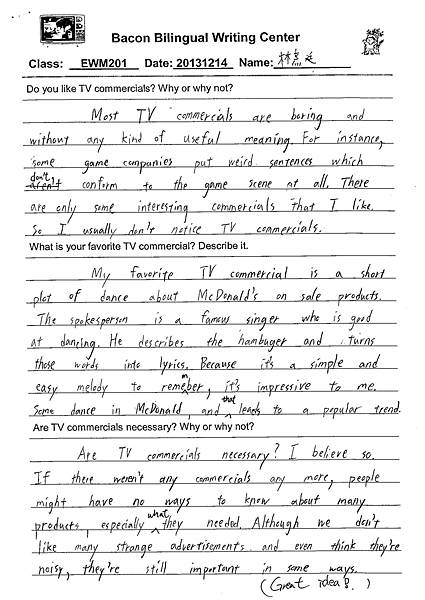 Bacon Bilingual Writing Center
Class: EWM201 Date: 20131214 Name: 林
Do you like TV commercials? Why or why not?
Most TV commercials are boring and
without any kind of useful meaning. For instance,
some game companies put weird sentences which
don't
aren't conform to the game scene at all. There
are only some interesting commercials that I like.
So I usually don't notice TV commercials.
What is your favorite TV commercial? Describe it.
My favorite TV commercial is a short
plot of dance about McDonald's on sale products.
The spokesperson is a famous singer who is good
at dancing. He describes the hambuger and turns
those words into lyrics. Because it's a simple and
easy melody to remember, it's impressive to me.
Some dance in McDonald, and that leads to a popular trend.
Are TV commercials necessary? Why or why not?
Are TV commercials necessary? I believe so.
If there weren't any commercials any more, people
might have no ways to know about many
products, especially what they needed. Although we don't
like many strange advertisements and even think they're
noisy, they're still important in some ways.
(Great idea!)